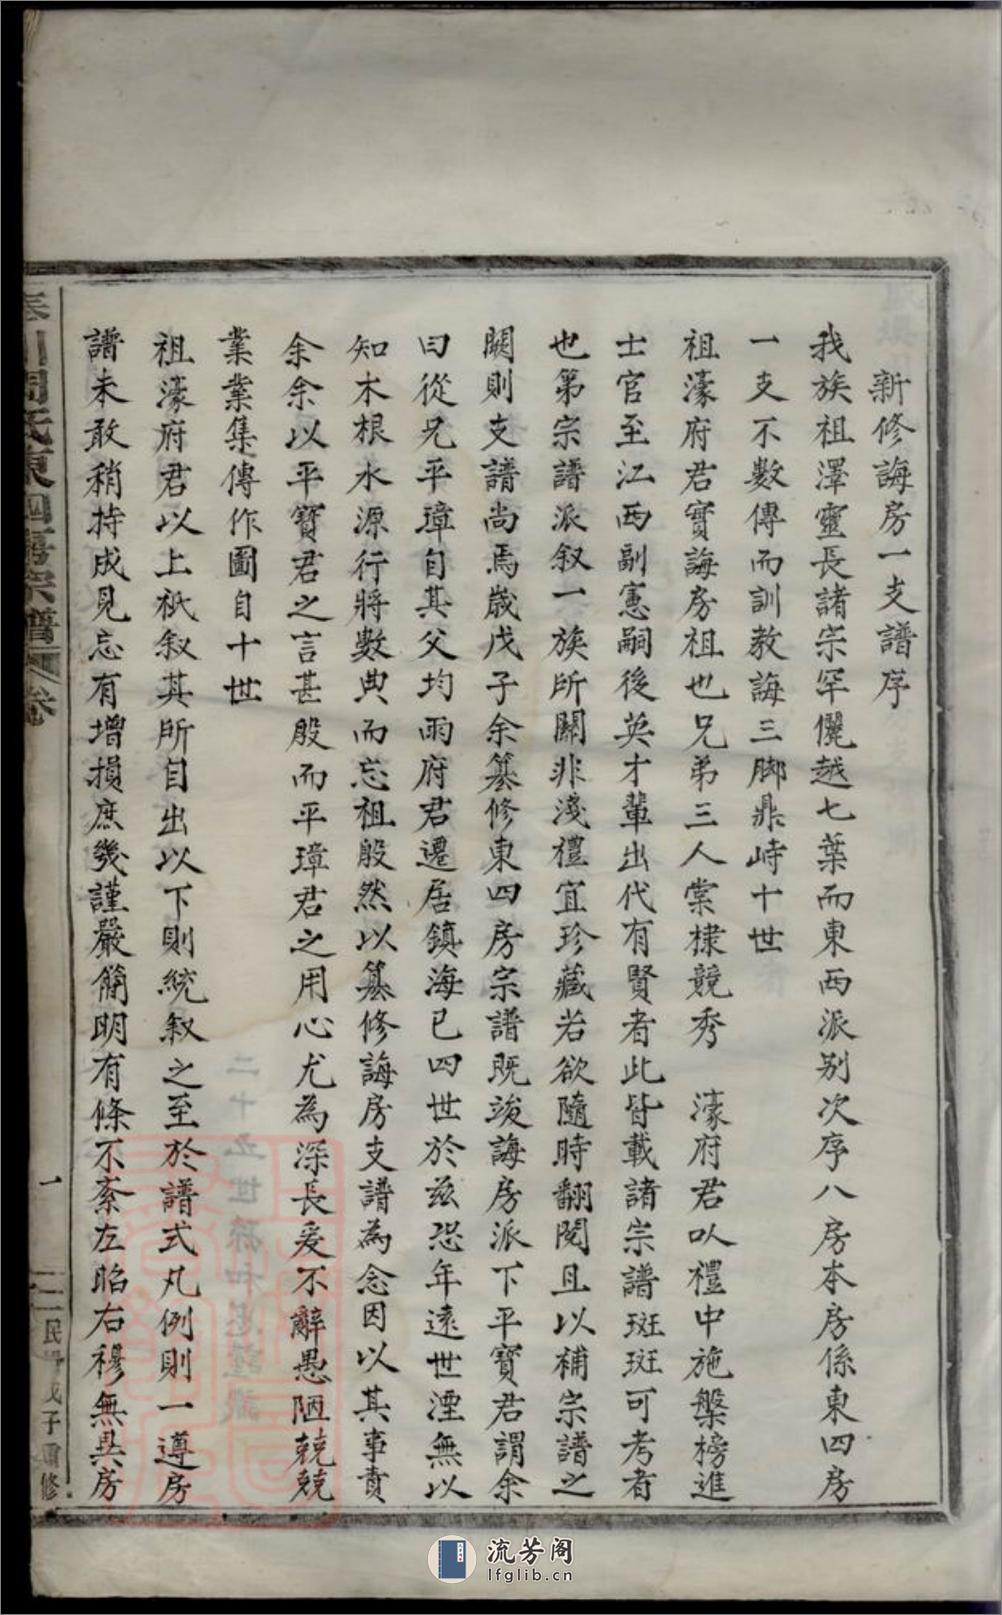 新修誨房一支譜序
我族祖澤靈長諸宗罕儷越七葉而東西派别次序八房本房係東四房
一支不數傳而訓教誨三脚鼎峙十世
祖濠府君實誨房祖也兄弟三人棠棣競秀　濠府君以禮中施槃榜進
士官至江西副憲嗣後英才輩出代有賢者此皆載諸宗譜斑斑可考者
也第宗譜派叙一族所關非淺禮宜珍藏若欲隨時翻閱且以補宗譜之
闕則支譜尚焉歲戊子余纂修東四房宗譜既竣誨房派下平寶君謂余
曰從兄平璋自其父均雨府君遷居鎮海已四世於兹恐年遠世湮無以
知木根水源行將數典而忘祖殷然以纂修誨房支譜為念因以其事責
余余以平寶君之言甚殷而平璋君之用心尤為深長爰不辭愚陋兢兢
業業集傳作圖自十世
祖濠府君以上祇叙其所自出以下則統叙之至於譜式凡例則一遵房
譜未敢稍持成見忘有增損庶幾謹嚴簡明有條不紊左昭右穆無異房
川周氏東四房宗譜 卷
一
民 戊子 修
二十五世孫和 謹識
流芳阁
lfglib.cn